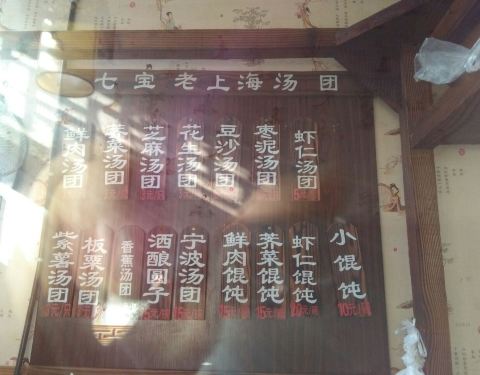 七宝老上海汤团
鲜肉汤团
荠菜汤团
芝麻汤团
花生汤团
豆沙汤团
枣泥汤团
虾仁汤团
紫薯汤团
板栗汤团
香蕉汤团
酒酿圆子
宁波汤团
鲜肉馄饨
15元/碗
荠菜馄饨
15元/碗
虾仁馄饨
20元/碗
小馄饨
10元/碗